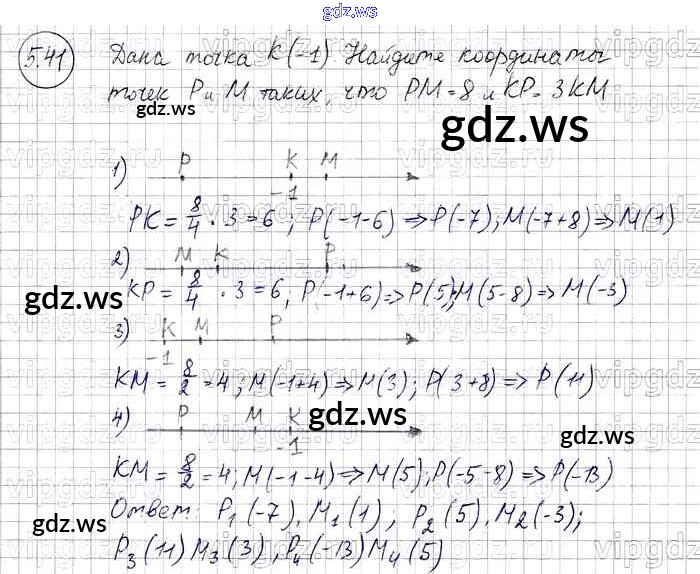 gdz.ws
5.41 Дана точка K(-1) Найдите координаты
точек P и M таких, что PM=8 и KP=3KM
gdz.ws
gdz.ws
1) P K M
-1
PK = 8/4 · 3 = 6; P(-1-6) => P(-7); M(-7+8) => M(1)
2) M K P
KP = 8/4 · 3 = 6; P(-1+6) => P(5); M(5-8) => M(-3)
gdz.ws
3) K M P
-1
KM = 8/2 = 4; M(-1+4) => M(3); P(3+8) => P(11)
gdz.ws
4) P M K
-1
gdz.ws
KM = 8/2 = 4; M(-1-4) => M(5); P(-5-8) => P(-13)
Ответ: P₁(-7), M₁(1); P₂(5), M₂(-3);
gdz.ws
P₃(11) M₃(3), P₄(-13) M₄(5)
gdz.ws